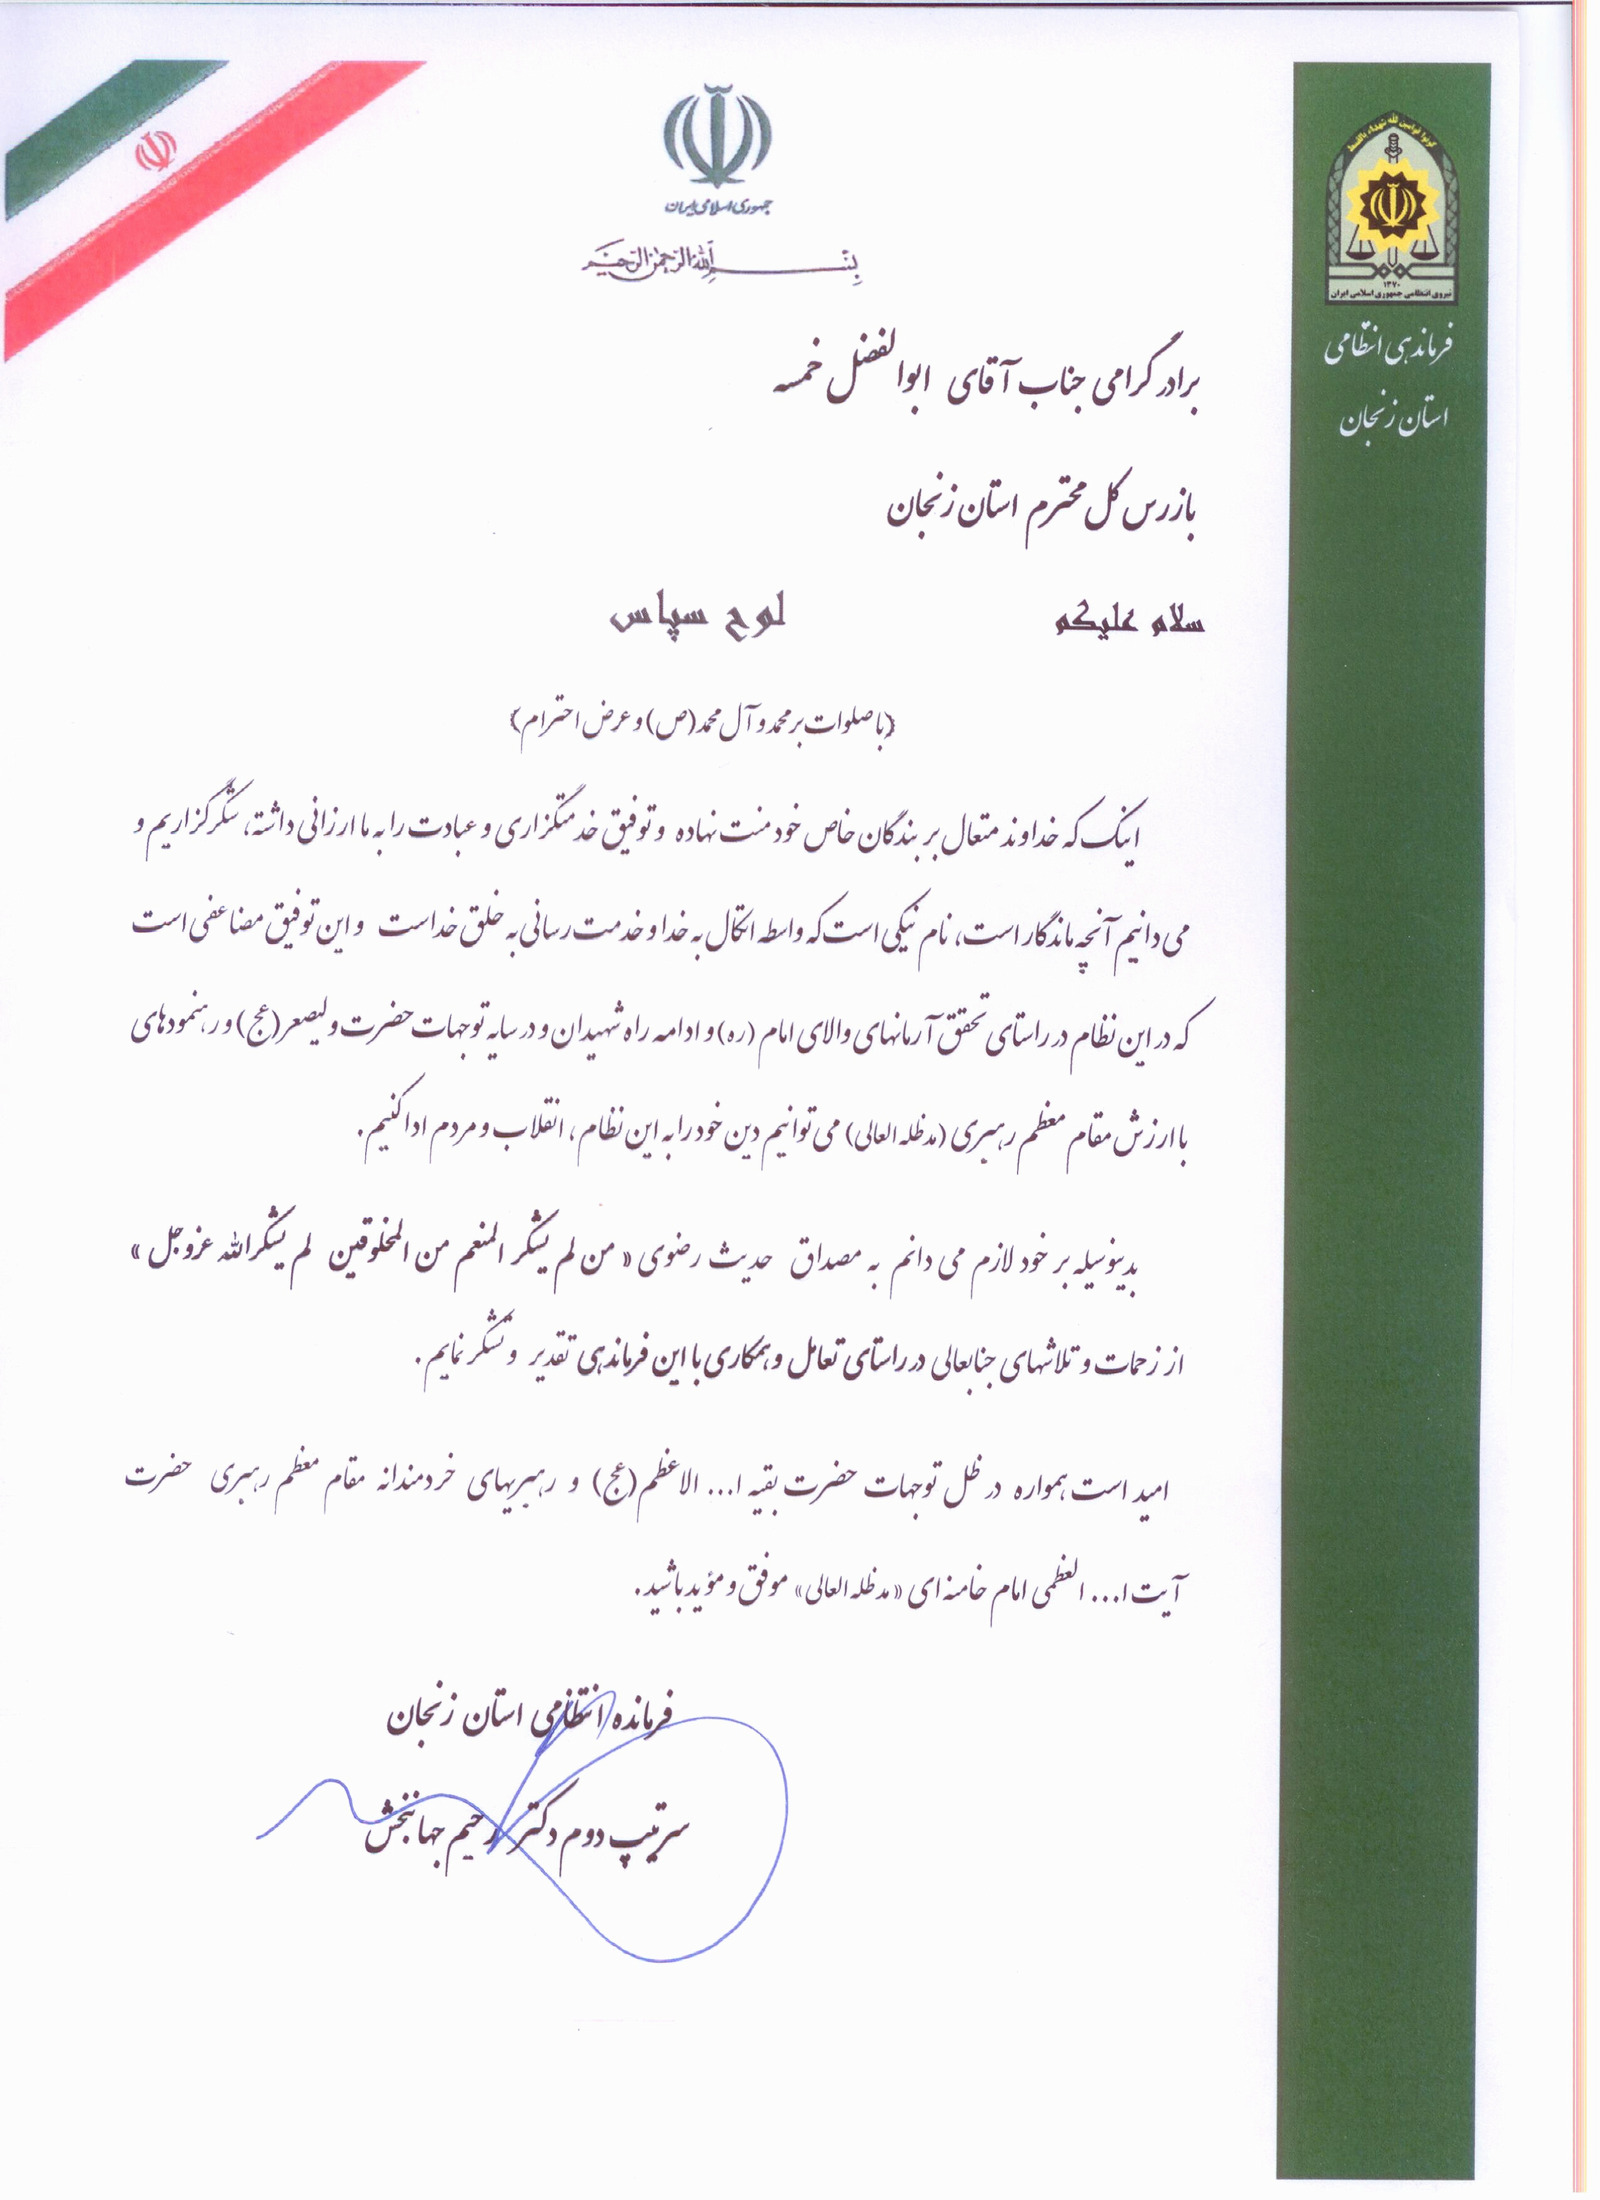 جمهوری اسلامی ایران
بسم الله الرحمن الرحیم
کونوا قوامین لله شهداء بالقسط
۱۳۷۰
نیروی انتظامی جمهوری اسلامی ایران
فرماندهی انتظامی
استان زنجان
برادر گرامی جناب آقای ابوالفضل خمسه
بازرس کل محترم استان زنجان
سلام علیکم
لوح سپاس
(با صلوات بر محمد و آل محمد(ص) و عرض احترام)
اینک که خداوند متعال بر بندگان خاص خود منت نهاده و توفیق خدمتگزاری و عبادت را به ما ارزانی داشته، شکرگزاریم و
می دانیم آنچه ماندگار است، نام نیکی است که واسط اتکال به خدا و خدمت رسانی به خلق خداست و این توفیق مضاعفی است
که در این نظام در راستای تحقق آرمانهای والای امام (ره) و ادامه راه شهیدان و در سایه توجهات حضرت ولیعصر(عج) و رهنمودهای
با ارزش مقام معظم رهبری (مدظله العالی) می توانیم دین خود را به این نظام، انقلاب و مردم ادا کنیم.
بدینوسیله بر خود لازم می دانم به مصداق حدیث رضوی « من لم یشکر المنعم من المخلوقین لم یشکرالله عزوجل »
از زحمات و تلاشهای جنابعالی در راستای تعامل و همکاری با این فرماندهی تقدیر و تشکر نمایم.
امید است همواره در ظل توجهات حضرت بقیه ا... الاعظم(عج) و رهبریهای خردمندانه مقام معظم رهبری حضرت
آیت ا... العظمی امام خامنه ای «مدظله العالی» موفق و مؤید باشید.
فرمانده انتظامی استان زنجان
سرتیپ دوم دکتر رحیم جهانبخش